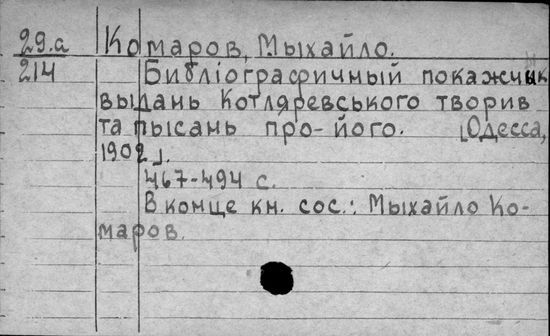 29.а Комаров, Мыхайло.
214 Библіографичный покажчык
выдань Котляревського творив
та пысань про-його. [Одесса,
1902].
467-494 с.
В конце кн. сос.: Мыхайло Ко-
маров.